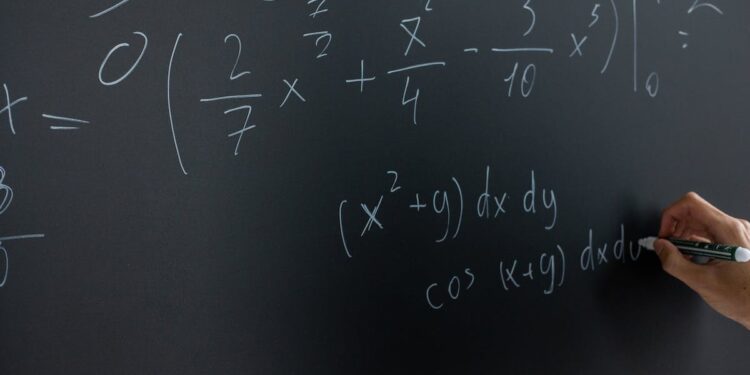 x = 0 ( 2/7 x^7/2 + x^2/4 - 3/10 x^5 ) |_0 =
(x² + y) dx dy
cos (x+y) dx dy